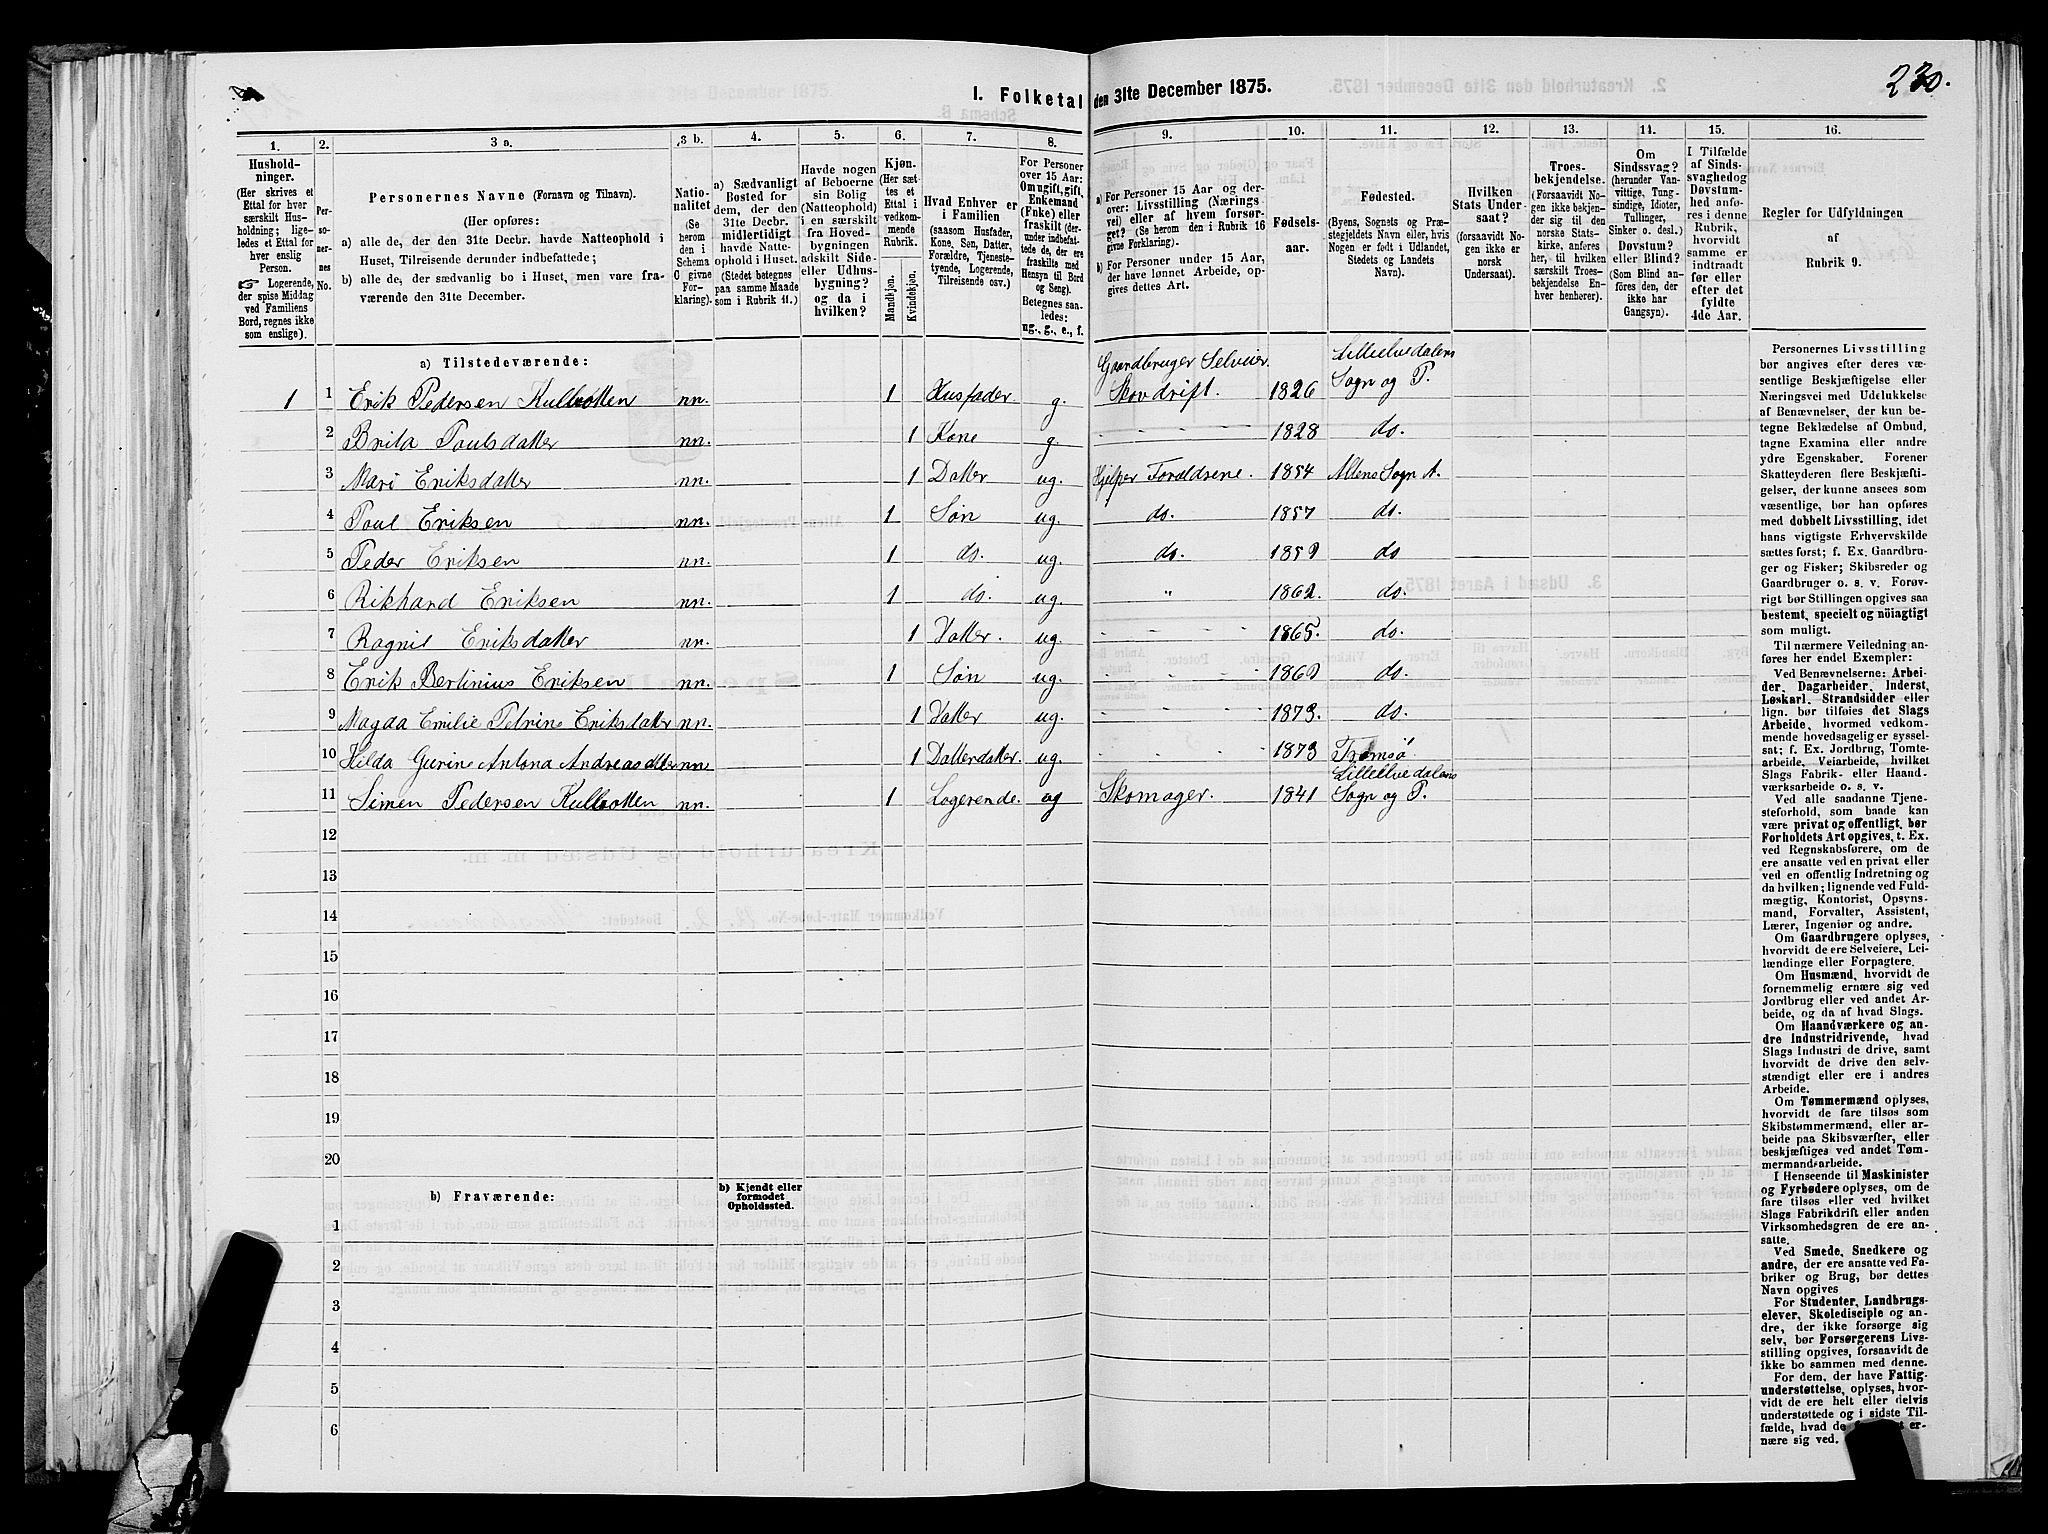 230.
I. Folketal den 31te December 1875.
1. 2. 3 a. 3 b. 4. 5. 6. 7. 8. 9. 10. 11. 12. 13. 14. 15. 16.
Hushold-
ninger.
(Her skrives et
Ettal for hver
særskilt Hus-
holdning; lige-
ledes et Ettal for
hver enslig
Person.
☞ Logerende,
der spise Middag
ved Familiens
Bord, regnes ikke
som enslige).
Per-
so-
ner-
nes
No.
Personernes Navne (Fornavn og Tilnavn).
(Her opføres:
a) alle de, der den 31te Decbr. havde Natteophold i
Huset, Tilreisende derunder indbefattede;
b) alle de, der sædvanlig bo i Huset, men vare fra-
værende den 31te December.
Natio-
nalitet
(Se
herom
den i
Schema
C givne
For-
klaring).
a) Sædvanligt
Bosted for
dem, der den
31te Decbr.
midlertidigt
havde Natte-
ophold i Huset.
(Stedet betegnes
paa samme Maade
som i Rubrik 11.)
Havde nogen
af Beboerne
sin Bolig
(Natteophold)
i en særskilt
fra Hoved-
bygningen
adskilt Side-
eller Udhus-
bygning?
og da i
hvilken?
Kjøn.
(Her sæt-
tes et
Ettal i
vedkom-
mende
Rubrik.
Mandkjøn.
Kvindekjøn.
Hvad Enhver er
i Familien
(saasom Husfader,
Kone, Søn, Datter,
Forældre, Tjeneste-
tyende, Logerende,
Tilreisende osv.)
For Personer
over 15 Aar:
Om ugift, gift,
Enkemand
(Enke) eller
fraskilt (der-
under indbefat-
tede de, der ere
fraskilte med
Hensyn til Bord
og Seng).
Betegnes saa-
ledes:
ug., g., e., f.
a) For Personer 15 Aar og der-
over: Livsstilling (Nærings
vei) eller af hvem forsør-
get? (Se herom den i Rubrik 16
givne Forklaring).
b) For Personer under 15 Aar,
der have lønnet Arbeide, op-
gives dettes Art.
Fødsels-
aar.
Fødested.
(Byens, Sognets og Præ-
stegjeldets Navn eller, hvis
Nogen er født i Udlandet,
Stedets og Landets
Navn).
Hvilken
Stats Under-
saat?
(forsaavidt No-
gen ikke er
norsk
Undersaat).
Troes-
bekjendelse.
(Forsaavidt No-
gen ikke bekjen-
der sig til den
norske Stats-
kirke, anføres
her, til hvilken
særskilt Troes-
bekjendelse En-
hver henhører).
Om
Sindssvag?
(herunder Van-
vittige, Tung-
sindige, Idioter,
Tullinger,
Sinker o. desl.)
Døvstum?
eller Blind?
(Som Blind an-
føres den, der
ikke har
Gangsyn).
I Tilfælde
af Sinds-
svaghed og
Døvstum-
hed anfø-
res i denne
Rubrik,
hvorvidt
samme er
indtraadt
før eller
efter det
fyldte
4de Aar.
Regler for Udfyldningen
af
Rubrik 9.
a) Tilstedeværende:
1 1 Erik Pedersen Kulbotten nn. 1 Husfader g. Gaardbruger Selveier. Skovdrift. 1826 Lilleelvedalens Sogn og P.
2 Brita Poulsdatter nn. 1 Kone g 1828 do.
3 Mari Eriksdatter nn. 1 Datter ug. Hjelper Foraldrene. 1854 Altens Sogn A.
4 Poul Eriksen nn. 1 Søn ug. do. 1857 do.
5 Peder Eriksen nn. 1 do. ug. do. 1859 do
6 Rikhard Eriksen nn. 1 do. ug. " 1862. do.
7 Ragnil Eriksdatter nn. 1 Datter. ug. 1865. do.
8 Erik Bertinius Eriksen nn. 1 Søn ug. 1869 do.
9 Magda Emilie Petrine Eriksdatter nn. 1 Datter ug. 1873. do.
10 Hilda Gurine Antona Andreasdatter nn. 1 Datterdatter. ug. 1873 Tromsø
11 Simen Pedersen Kulbotten nn. 1 Logerende. ug Skomager. 1841 Lilleelvedalens Sogn og P.
12
13
14
15
16
17
18
19
20
b) Fraværende:
b) Kjendt eller
formodet
Opholdssted.
1
2
3
4
5
6
Personernes Livsstilling
bør angives efter deres væ-
sentlige Beskjæftigelse eller
Næringsvei med Udelukkelse
af Benævnelser, der kun be-
tegne Beklædelse af Ombud,
tagne Examina eller andre
ydre Egenskaber. Forener
Skatteyderen flere Beskjæfti-
gelser, der kunne ansees som
væsentlige, bør han opføres
med dobbelt Livsstilling, idet
hans vigtigste Erhvervskilde
sættes først; f. Ex. Gaardbru-
ger og Fisker; Skibsreder og
Gaardbruger o. s. v. Forøv-
rigt bør Stillingen opgives saa
bestemt, specielt og nöiagtigt
som muligt.
Til nærmere Veiledning an-
føres her endel Exempler:
Ved Benævnelserne: Arbei-
der, Dagarbeider, Inderst,
Løskarl, Strandsidder eller
lign. bør tilføies det Slags
Arbeide, hvormed vedkom-
mende hovedsagelig er syssel-
sat; f. Ex. Jordbrug, Tomte-
arbeide, Veiarbeide, hvilket
Slags Fabrik- eller Haand-
værksarbeide o. s. v.
Ved alle saadanne Tjene-
steforhold, som baade kan
være privat og offentligt, bør
Forholdets Art opgives, t. Ex.
ved Regnskabsførere, om de
ere ansatte ved en privat eller
ved en offentlig Indretning og
da hvilken; lignende ved Fuld-
mægtig, Kontorist, Opsyns-
mand, Forvalter, Assistent,
Lærer, Ingeniør og andre.
Om Gaardbrugere oplyses,
hvorvidt de ere Selveiere, Lei-
lændinge eller Forpagtere.
Om Husmænd, hvorvidt de
fornemmelig ernære sig ved
Jordbrug eller ved andet Ar-
beide, og da af hvad Slags.
Om Haandværkere og an-
dre Industridrivende, hvad
Slags Industri de drive, samt
hvorvidt de drive den selv-
stændigt eller ere i andres
Arbeide.
Om Tømmermænd oplyses,
hvorvidt de fare tilsøs som
Skibstømmermænd, eller ar-
beide paa Skibsværfter, eller
beskjæftiges ved andet Tøm-
mermandsarbeide.
I Henseende til Maskinister
og Fyrbødere oplyses, om de
fare tilsøs eller ved hvilket
Slags Fabrikdrift eller anden
Virksomhedsgren de ere an-
satte.
Ved Smede, Snedkere og
andre, der ere ansatte ved Fa-
briker og Brug, bør dettes
Navn opgives
For Studenter, Landbrugs-
elever, Skoledisciple og an-
dre, der ikke forsørge sig
selv, bør Forsørgerens Livs-
stilling opgives, forsaavidt de
ikke bo sammen med denne.
For dem, der have Fattig-
understøttelse, oplyses, hvor-
vidt de ere helt eller delvis
understøttede og i sidste Til-
fælde, hvad de er-
nære sig ved.